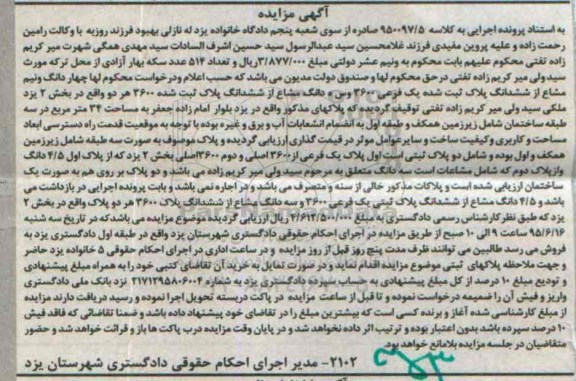 آگهی مزایده
به استناد پرونده اجرایی به کلاسه ۹۵۰۰۹۷/۵ صادره از سوی شعبه پنجم دادگاه خانواده یزد له نازلی بهبود فرزند روزبه با وکالت رامین
رحمت زاده و علیه پروین مفیدی فرزند غلامحسین سید عبدالرسول سید حسین اشرف السادات سید مهدی همگی شهرت میر کریم
زاده تفتی محکوم علیهم بابت محکوم به ونیم عشر دولتی مبلغ ۳/۸۷۷/۰۰۰ریال و تعداد ۵۱۴ عدد سکه بهار آزادی از محل ترکه مورث
سید ولی میر کریم زاده تفتی در حق محکوم لها و صندوق دولت مدیون می باشد که حسب اعلام ودرخواست محکوم لها چهار دانگ ونیم
مشاع از ششدانگ پلاک ثبت شده یک فرعی ۳۶۰۰ وسه دانگ مشاع از ششدانگ پلاک ثبت شده ۳۶۰۰ هر دو واقع در بخش ۲ یزد
ملکی سید ولی میر کریم زاده تفتی توقیف گردیده که پلاکهای مذکور واقع در یزد بلوار امام زاده جعفر به مساحت ۳۴ متر مربع در سه
طبقه ساختمان شامل زیرزمین همکف و طبقه اول به انضمام انشعابات آب و برق و غیره بوده با توجه به موقعیت قدمت راه دسترسی ابعاد
مساحت و کاربری وکیفیت ساخت و سایر عوامل موثر در قیمت گذاری ارزیابی گردیده و پلاک موصوف به صورت سه طبقه شامل زیرزمین
همکف و اول بوده و شامل دو پلاک ثبتی است اول پلاک یک فرعی از ۳۶۰۰ اصلی و دوم ۳۶۰۰اصلی بخش ۲ یزد که از پلاک اول ۴/۵ دانگ
وازپلاک دوم که شامل مشاعات است سه دانگ متعلق به مرحوم سید ولی میر کریم زاده می باشد و دو پلاک بر روی هم به صورت یک
ساختمان ارزیابی شده است و پلاکات مذکور خالی از سنه و متصرف می باشد و در اجاره نمی باشد و بابت پرونده اجرایی در بازداشت می
باشد و ۴/۵ دانگ مشاع از ششدانگ پلاک ثبتی یک فرعی ۳۶۰۰ و سه دانگ مشاع از ششدانگ پلاک ۳۶۰۰ هر دو پلاک واقع در بخش ۲
یزد که طبق نظر کارشناس رسمی دادگستری به مبلغ ۴/۶۱۲/۵۰۰/۰۰۰ریال ارزیابی گردیده موضوع مزایده می باشدکه در تاریخ سه شنبه
۹۵/۶/۱۶ ساعت ۹ الی ۱۰ صبح از طریق مزایده در اجرای احکام حقوقی دادگستری شهرستان یزد واقع در طبقه اول دادگستری یزد به
فروش می رسد طالبین می توانند ظرف مدت پنج روز قبل از روز مزایده و در ساعت اداری در اجرای احکام حقوقی ۵ خانواده یزد حاضر
و جهت ملاحظه پلاکهای ثبتی موضوع مزایده اقدام نماید و در صورت تمایل به خرید آن تقاضای کتبی خود را به همراه مبلغ پیشنهادی
و تودیع مبلغ ۱۰ درصد از کل مبلغ پیشنهادی به حساب سپرده دادگستری یزد به شماره ۲۱۷۱۲۹۵۸۰۶۰۰۴ نزد بانک ملی دادگستری
واریز و فیش آن را ضمیمه درخواست نموده و تا قبل از ساعت مزایده در پاکت دربسته تحویل اجرا نموده و رسید دریافت دارند مزایده
از مبلغ کارشناسی شده آغاز و برنده کسی است که بیشترین مبلغ را در تقاضای خود پیشنهاد داده باشد و ضمنا تقاضائی که فاقد فیش
۱۰ درصد سپرده باشد بدون اعتبار بوده و ترتیب اثر داده نخواهد شد و در پایان وقت مزایده درب پاکت ها باز و قرائت خواهد شد و حضور
متقاضیان در جلسه مزایده بلامانع خواهد بود.
۲۱۰۲- مدیر اجرای احکام حقوقی دادگستری شهرستان یزد